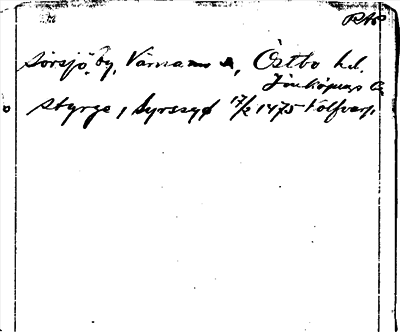 RAP
Sörsjö by, Värnamo s, Östbo hd.
Jönköpings l.
Styrge, i Syrssyø 17/2 1475 Kolfvarp.